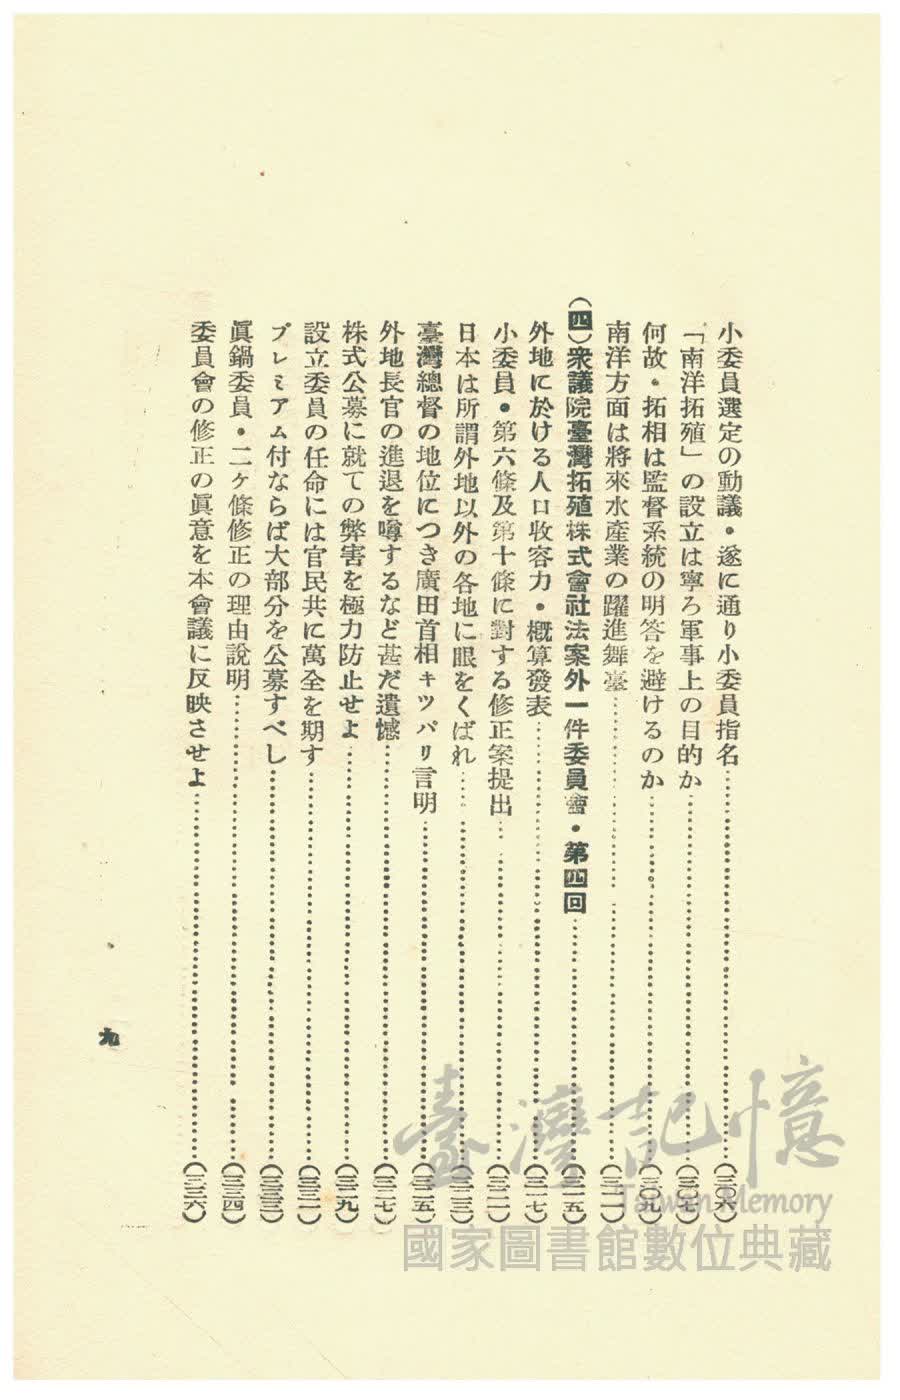 小委員選定の動議・遂に通り小委員指名……………………(三〇六)
「南洋拓殖」の設立は寧ろ軍事上の目的か……………………(三〇七)
何故・拓相は監督系統の明答を避けるのか……………………(三〇九)
南洋方面は將來水産業の躍進舞臺……………………(三一一)
(四)衆議院臺灣拓殖株式會社法案外一件委員會・第四回……………………(三一五)
外地に於ける人口收容力・槪算發表……………………(三一七)
小委員・第六條及第十條に對する修正案提出……………………(三二一)
日本は所謂外地以外の各地に眼をくばれ……………………(三二三)
臺灣總督の地位につき廣田首相キツパリ言明……………………(三二五)
外地長官の進退を噂するなど甚だ遺憾……………………(三二七)
株式公募に就ての弊害を極力防止せよ……………………(三二九)
設立委員の任命には官民共に萬全を期す……………………(三三一)
プレミアム付ならば大部分を公募すべし……………………(三三三)
眞鍋委員・二ケ條修正の理由說明……………………(三三四)
委員會の修正の眞意を本會議に反映させよ……………………(三三六)
九
臺灣記憶
Taiwan Memory
國家圖書館數位典藏